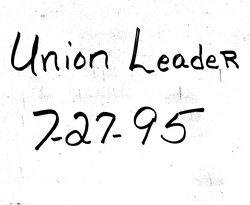 Union Leader
7-27-95